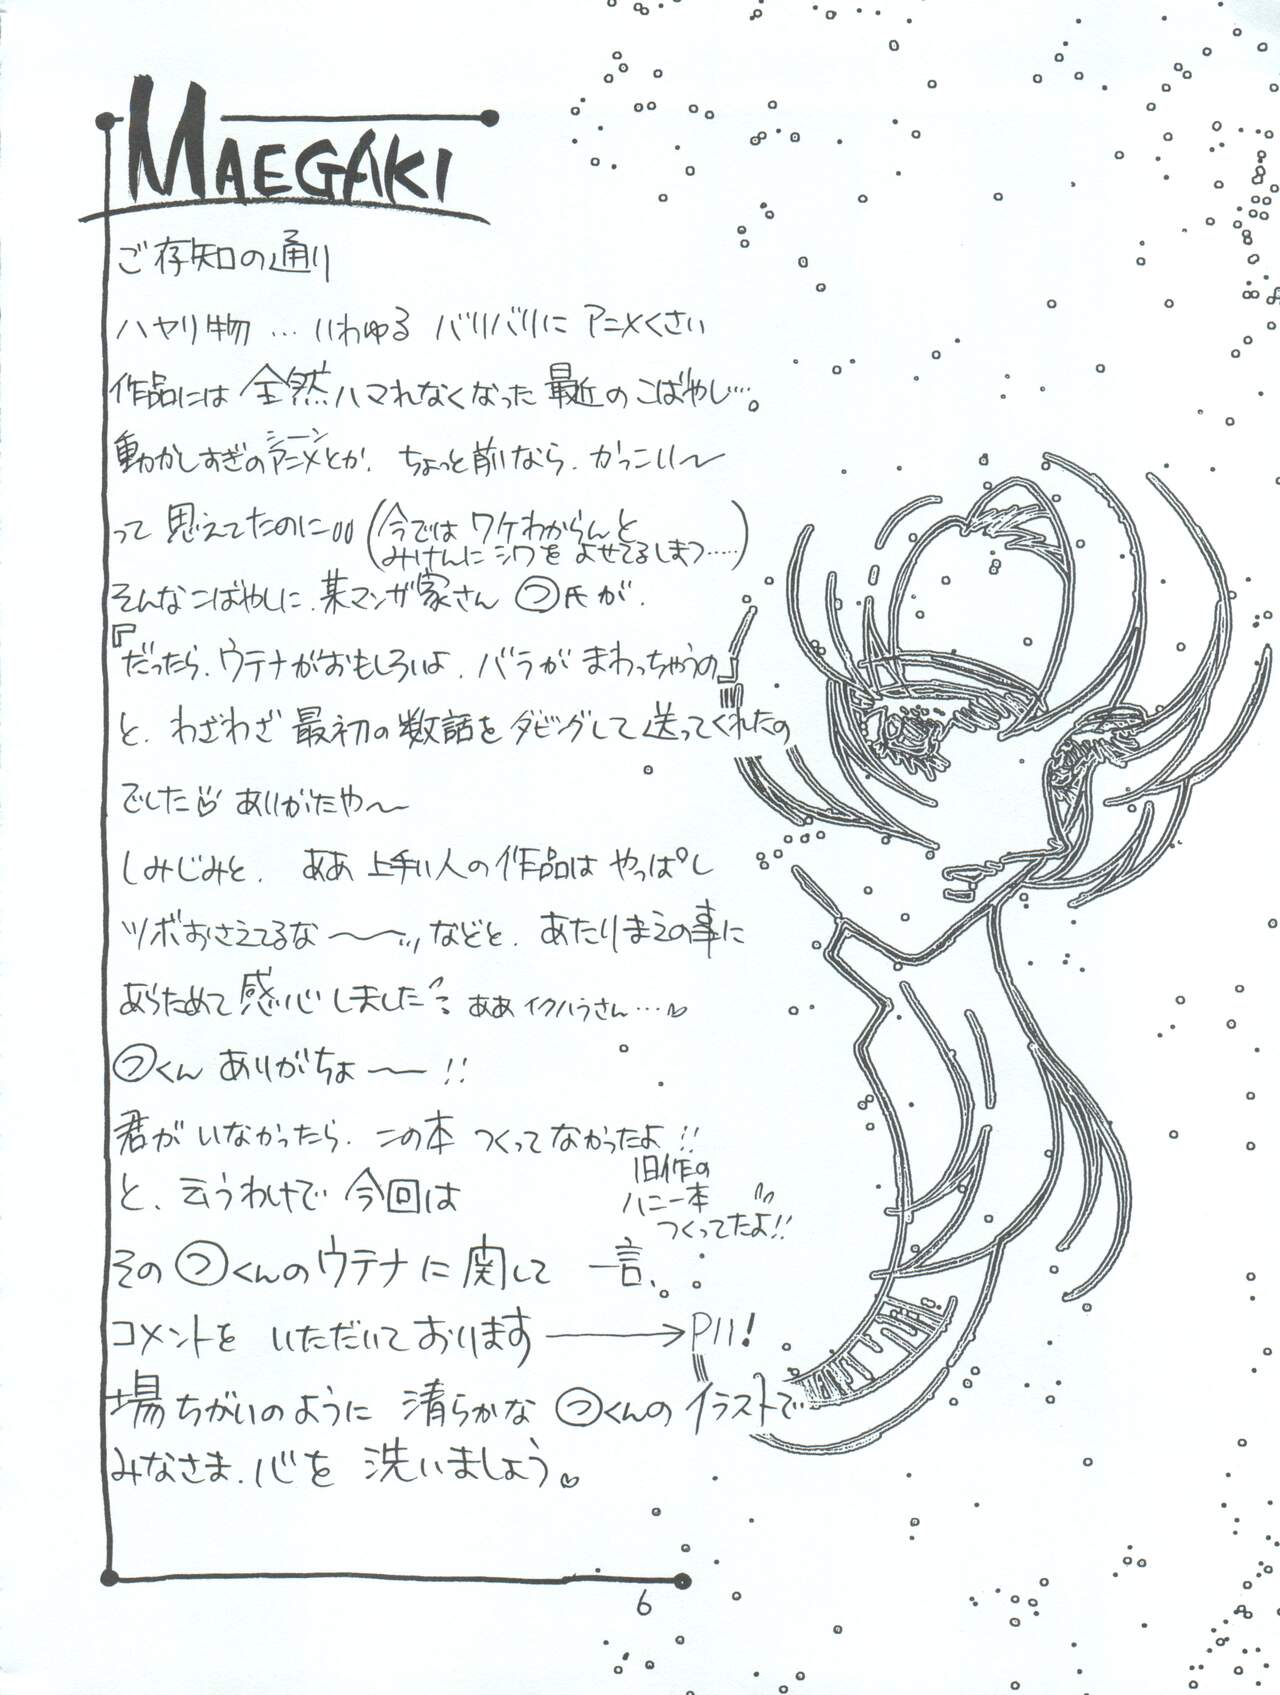 MAEGAKI
ご存知の通り
ハヤリ物…いわゆる バリバリに アニメくさい
作品には 全然ハマれなくなった 最近の こばやし…。
動かしすぎのアニメとか、ちょっと前なら、かっこい〜
シーン
って 思えてたのに 今では ワケわからんと
みけんに シワを よせてるしまつ……
そんなこばやしに、某マンガ家さん つ氏が、
『だったら、ウテナがおもしろいよ、バラが まわっちゃうの』
と、わざわざ 最初の数話を ダビングして 送ってくれたの
でした♡ ありがたや〜
しみじみと、ああ 上手い人の作品は やっぱし
ツボおさえてるな〜〜… などと、あたりまえの事に
あらためて 感心しました ああ イクハラさん…♡
つくん ありがちょ〜!!
君が いなかったら、この本 つくってなかったよ!!
旧作の
ハニー本
つくってたよ!!
と、云うわけで 今回は
その つくんのウテナに関して 一言、
コメントを いただいております→P11!
場ちがいのように 清らかな つくんの イラストで
みなさま、心を 洗いましょう♡
6